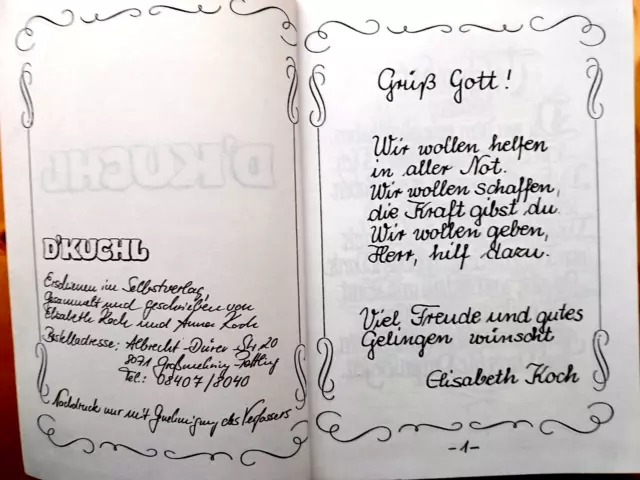 D'KUCHL
Erschienen im Selbstverlag,
Gesammelt und geschrieben von
Elisabeth Koch und Anna Koch
Bestelladresse: Albrecht-Dürer Str 20
8071 Großmehring-Pettling
Tel.: 08407/8040
Nachdruck nur mit Genehmigung des Verfassers
Grüß Gott!
Wir wollen helfen
in aller Not.
Wir wollen schaffen,
die Kraft gibst du.
Wir wollen geben,
Herr, hilf dazu.
Viel Freude und gutes
Gelingen wünscht
Elisabeth Koch
-1-